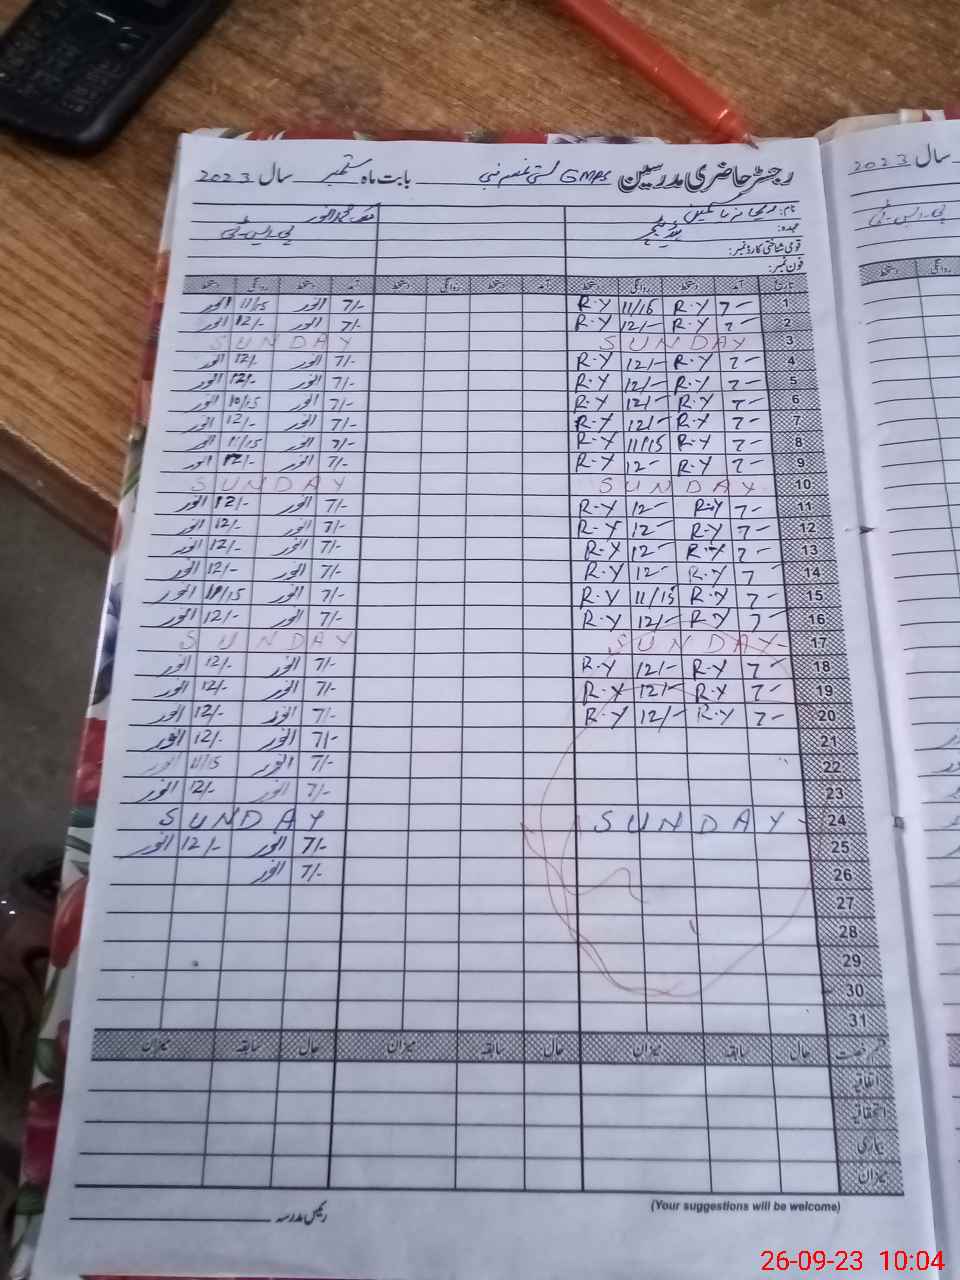 رجسٹر حاضری مدرسین GMPS بستی بابت ماہ ستمبر سال 2023
نام:
عہدہ: پی۔ایس۔ٹی
قومی شناختی کارڈ نمبر:
فون نمبر:
تاریخ آمد دستخط روانگی دستخط آمد دستخط روانگی دستخط آمد دستخط روانگی دستخط
1 7- R.Y 11/15 R.Y 7/- انور 11/15 انور
2 7- R.Y 12/- R.Y 7/- انور 12/- انور
3 SUNDAY SUNDAY
4 7- R.Y 12/- R.Y 7/- انور 12/- انور
5 7- R.Y 12/- R.Y 7/- انور 12/- انور
6 7- R.Y 12/- R.Y 7/- انور 10/15 انور
7 7- R.Y 12/- R.Y 7/- انور 12/- انور
8 7- R.Y 11/15 R.Y 7/- انور 11/15 انور
9 7- R.Y 12- R.Y 7/- انور 12/- انور
10 SUNDAY SUNDAY
11 7- R.Y 12- R.Y 7/- انور 12/- انور
12 7- R.Y 12- R.Y 7/- انور 12/- انور
13 7- R.Y 12- R.Y 7/- انور 12/- انور
14 7- R.Y 12- R.Y 7/- انور 12/- انور
15 7- R.Y 11/15 R.Y 7/- انور 11/15 انور
16 7- R.Y 12/- R.Y 7/- انور 12/- انور
17 SUNDAY SUNDAY
18 7- R.Y 12/- R.Y 7/- انور 12/- انور
19 7- R.Y 12/- R.Y 7/- انور 12/- انور
20 7- R.Y 12/- R.Y 7/- انور 12/- انور
21 7/- انور 12/- انور
22 7/- انور 11/15 انور
23 7/- انور 12/- انور
24 SUNDAY SUNDAY
25 7/- انور 12/- انور
26 7/- انور
27
28
29
30
31
حال سابقہ میزان حال سابقہ میزان حال سابقہ میزان
اتفاقیہ
استحقاقیہ
بیماری
میزان
رئیس مدرسہ
(Your suggestions will be welcome)
سال 2023
پی۔ایس۔ٹی
روانگی دستخط
26-09-23 10:04